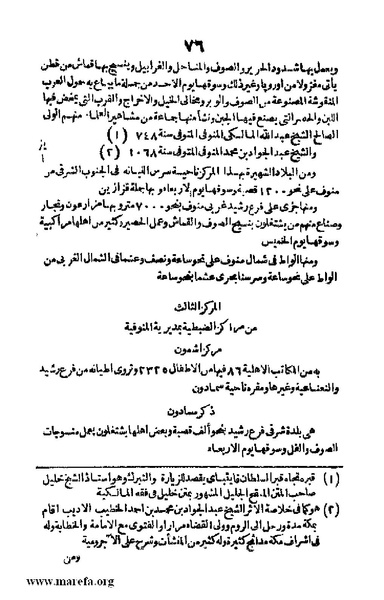 ٧٦
ويعمل بها شدود الحرير والصوف والمناحل والغرابيل وينسج بها قماش من قطن
يأتى مغزولا من اوروپا وغير ذلك وسوقها يوم الاحد من جملة ما يباع به حمول العرب
المنقوشة المصنوعة من الصوف والوبر ومخالى الخيل والاخراج والقرب التى يمخض فيها
اللبن والحصر التى يصنع فيها الجبن ونشأ منها جماعة من مشاهير العلماء منهم الولى
الصالح الشيخ عبد الله المالكى المنوفى المتوفى سنة ٧٤٨ (١)
والشيخ عبد الجواد بن محمد المنوفى المتوفى سنة ١٠٦٨ (٢)
ومن البلاد الشهيرة بهذا المركز ناحية سرس الليانه فى الجنوب الشرقى من
منوف على نحو ١٣٠٠ قصبة وسوقها يوم الاربعاء وبها جملة قزازين
ومنها جزى على فرع رشيد غربى منوف بنحو ٧٠٠٠ مترو بها مزارعون وتجار
وصناع منهم من يشتغلون بنسيج الصوف والقماش وعمل الحصير وكثير من اهلها مراكبية
وسوقها يوم الخميس
ومنها الواط فى شمال منوف على نحو ساعة ونصف وعشما فى الشمال الغربى من
الواط على نحو ساعة وسرسنا بحرى عشما بنحو ساعة
المركز الثالث
من مراكز الضبطية بمديرية المنوفية
مركز اشمون
به من المكاتب الاهلية ٨٦ فيها من الاطفال ٢٣٢٥ وتروى اطيانه من فرع رشيد
والنعناعية وغيرها ومقره ناحية سمادون
ذكر سمادون
هى بلدة شرقى فرع رشيد بنحو ألف قصبة وبعض اهلها يشتغلون بعمل منسوجات
الصوف والغل وسوقها يوم الاربعاء
(١) قبره تجاه قبر السلطان قايتباى يقصد للزيارة والتبرك وهو استاذ الشيخ خليل
صاحب المتن الجليل المشهور بمتن خليل فى فقه المالكية
(٢) هو كما فى خلاصة الأثر الشيخ عبد الجواد بن محمد بن احمد الخطيب الاديب اقام
بمكة مدة ورحل الى الروم وولى القضاء مرارا والفتوى مع الامامة والخطابة وله
فى اشراف مكة مدائح كثيرة وله كثير من المنشآت وشرح على الآجرومية
ومن
www.marefa.org